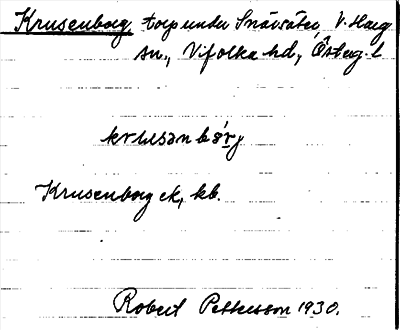 Krusenborg torp under Snåvsåter, V. Harg
sn., Vifolka hd, Österg. l
krusənbǒrj
Krusenborg ek, kb.
Robert Pettersson 1930.